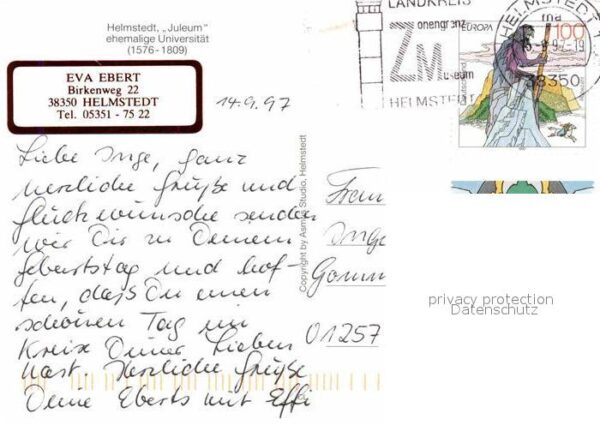 Helmstedt, „Juleum"
ehemalige Universität
(1576 - 1809)
EVA EBERT
Birkenweg 22
38350 HELMSTEDT
Tel. 05351 - 75 22
14.9.97
LANDKREIS
onengrenz
ZM useum
HELMSTEDT
HELMSTEDT
38350
EUROPA
100
Deutschland
Liebe Inge, ganz
herzliche Grüße und
Glückwünsche senden
wir Dir zu Deinem
Geburtstag und hof-
fen, daß Du einen
schönen Tag im
Kreise Deiner Lieben
hast. Herzliche Grüße
Deine Eberts mit Effi
Copyright by Asmus Studio, Helmstedt
Frau
Inge
01257
privacy protection
Datenschutz